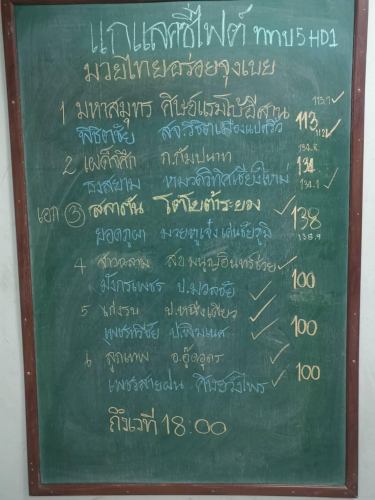 แกแลคซี่ไฟต์ ททบ5HD1
มวยไทยอร่อยจุงเบย
1 มหาสมุทร ศิษย์แรมโบ้อีสาน 113.7 ✓
113
พิชิตชัย ส.จ.วิชิตเมืองแปดริ้ว 112 ✓
2 เผด็จศึก ก.กัมปนาท 134.8
134
ธงสยาม หมวดวิทิศเชียงใหม่ 134.1 ✓
เอก ③ สลาตัน โตโยต้าระยอง ✓
138
ยอดภูผา มวยตู้เจ๋งเด่นชัยภูมิ 138.9
4 สาวฉลาม ส.บุญอินทร์ช่วย ✓
100
มังกรเพชร ป.มวลชัย ✓
5 เก่งรบ ป.หญิงเสี่ยว ✓
100
เพชรศรีชัย ป.พิมเนศ ✓
6 ลูกเทพ อ.อู๊ดอุดร ✓
100
เพชรสายฝน ศิษย์วังไพร ✓
ถึงเวที 18:00